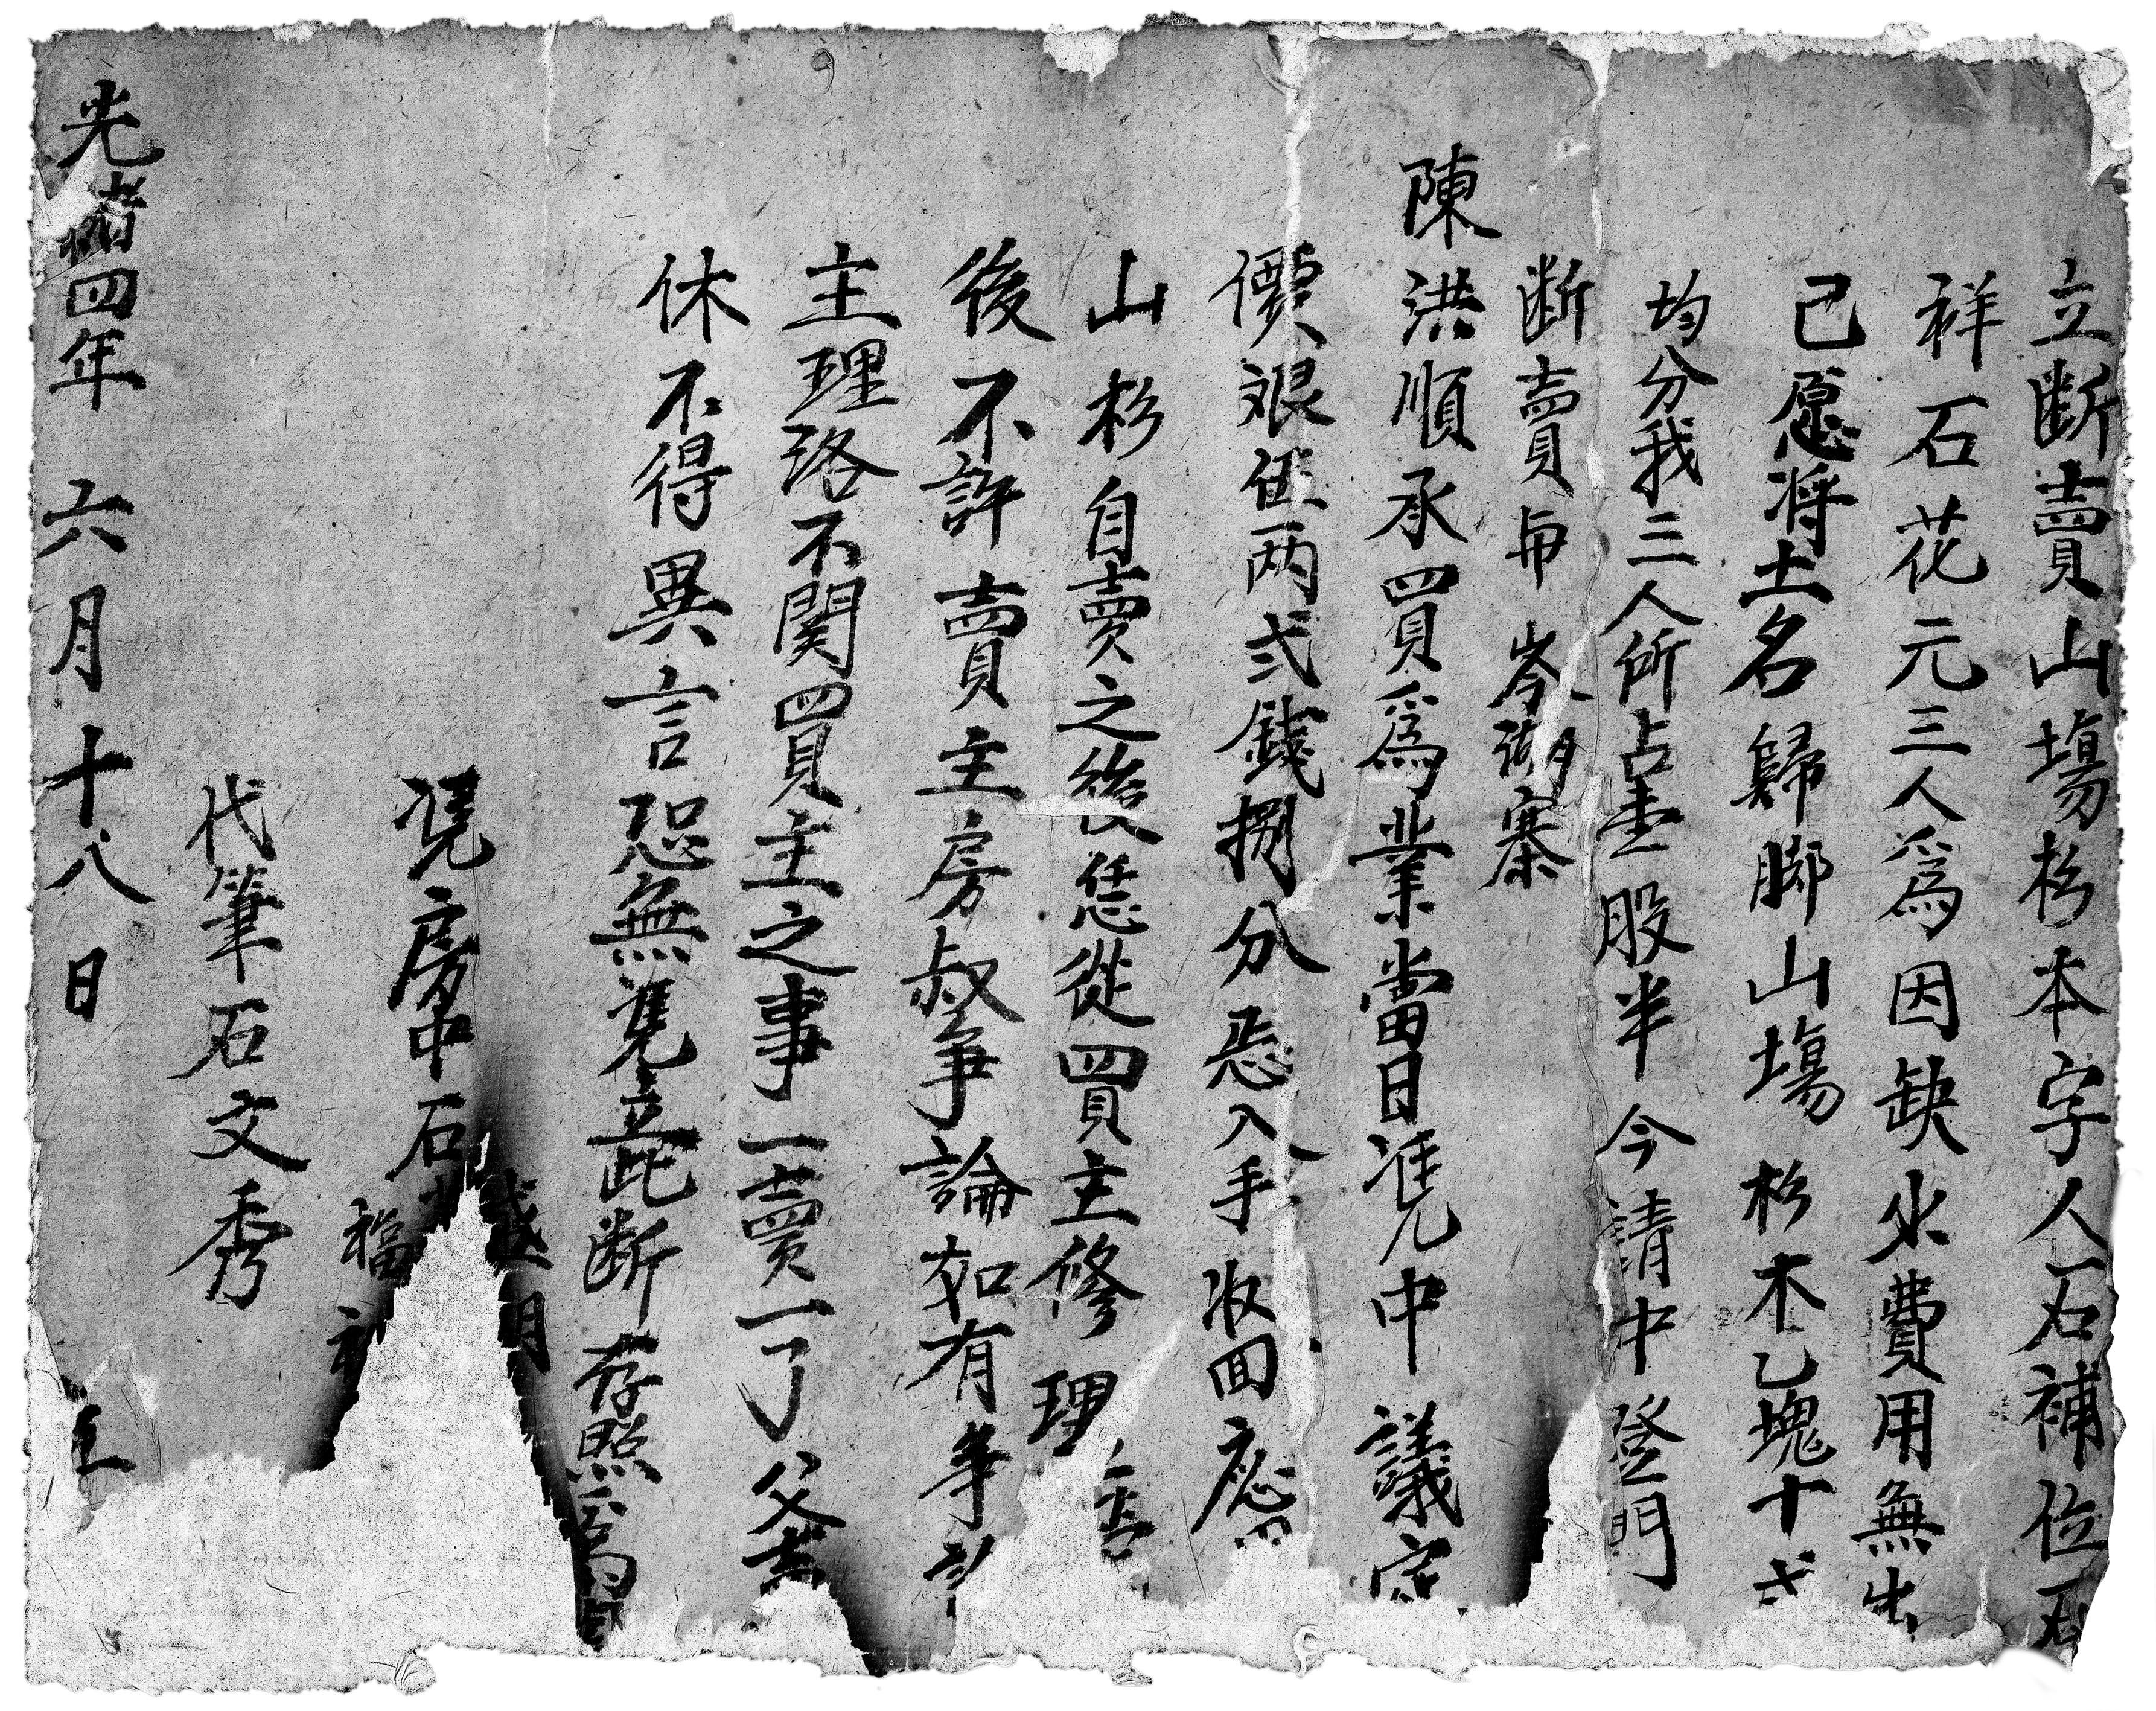 立断賣山塲杉本字人石補位石
祥石花元三人爲因缺少費用無出
己愿将土名歸脚山塲杉木乙塊十弍
均分我三人所占壹股半今請中登門
断賣与岑湖寨
陳洪順承買爲業當日凭中議定
價艮伍两弍錢捌分悉入手收回應
山杉自賣之後恁從買主修理
後不許賣主房叔争論如有争
主理落不関買主之事一賣一了父
休不得異言恐無凴立此断存照爲
凭房中石
福
代筆石文秀
光緒四年六月十八日